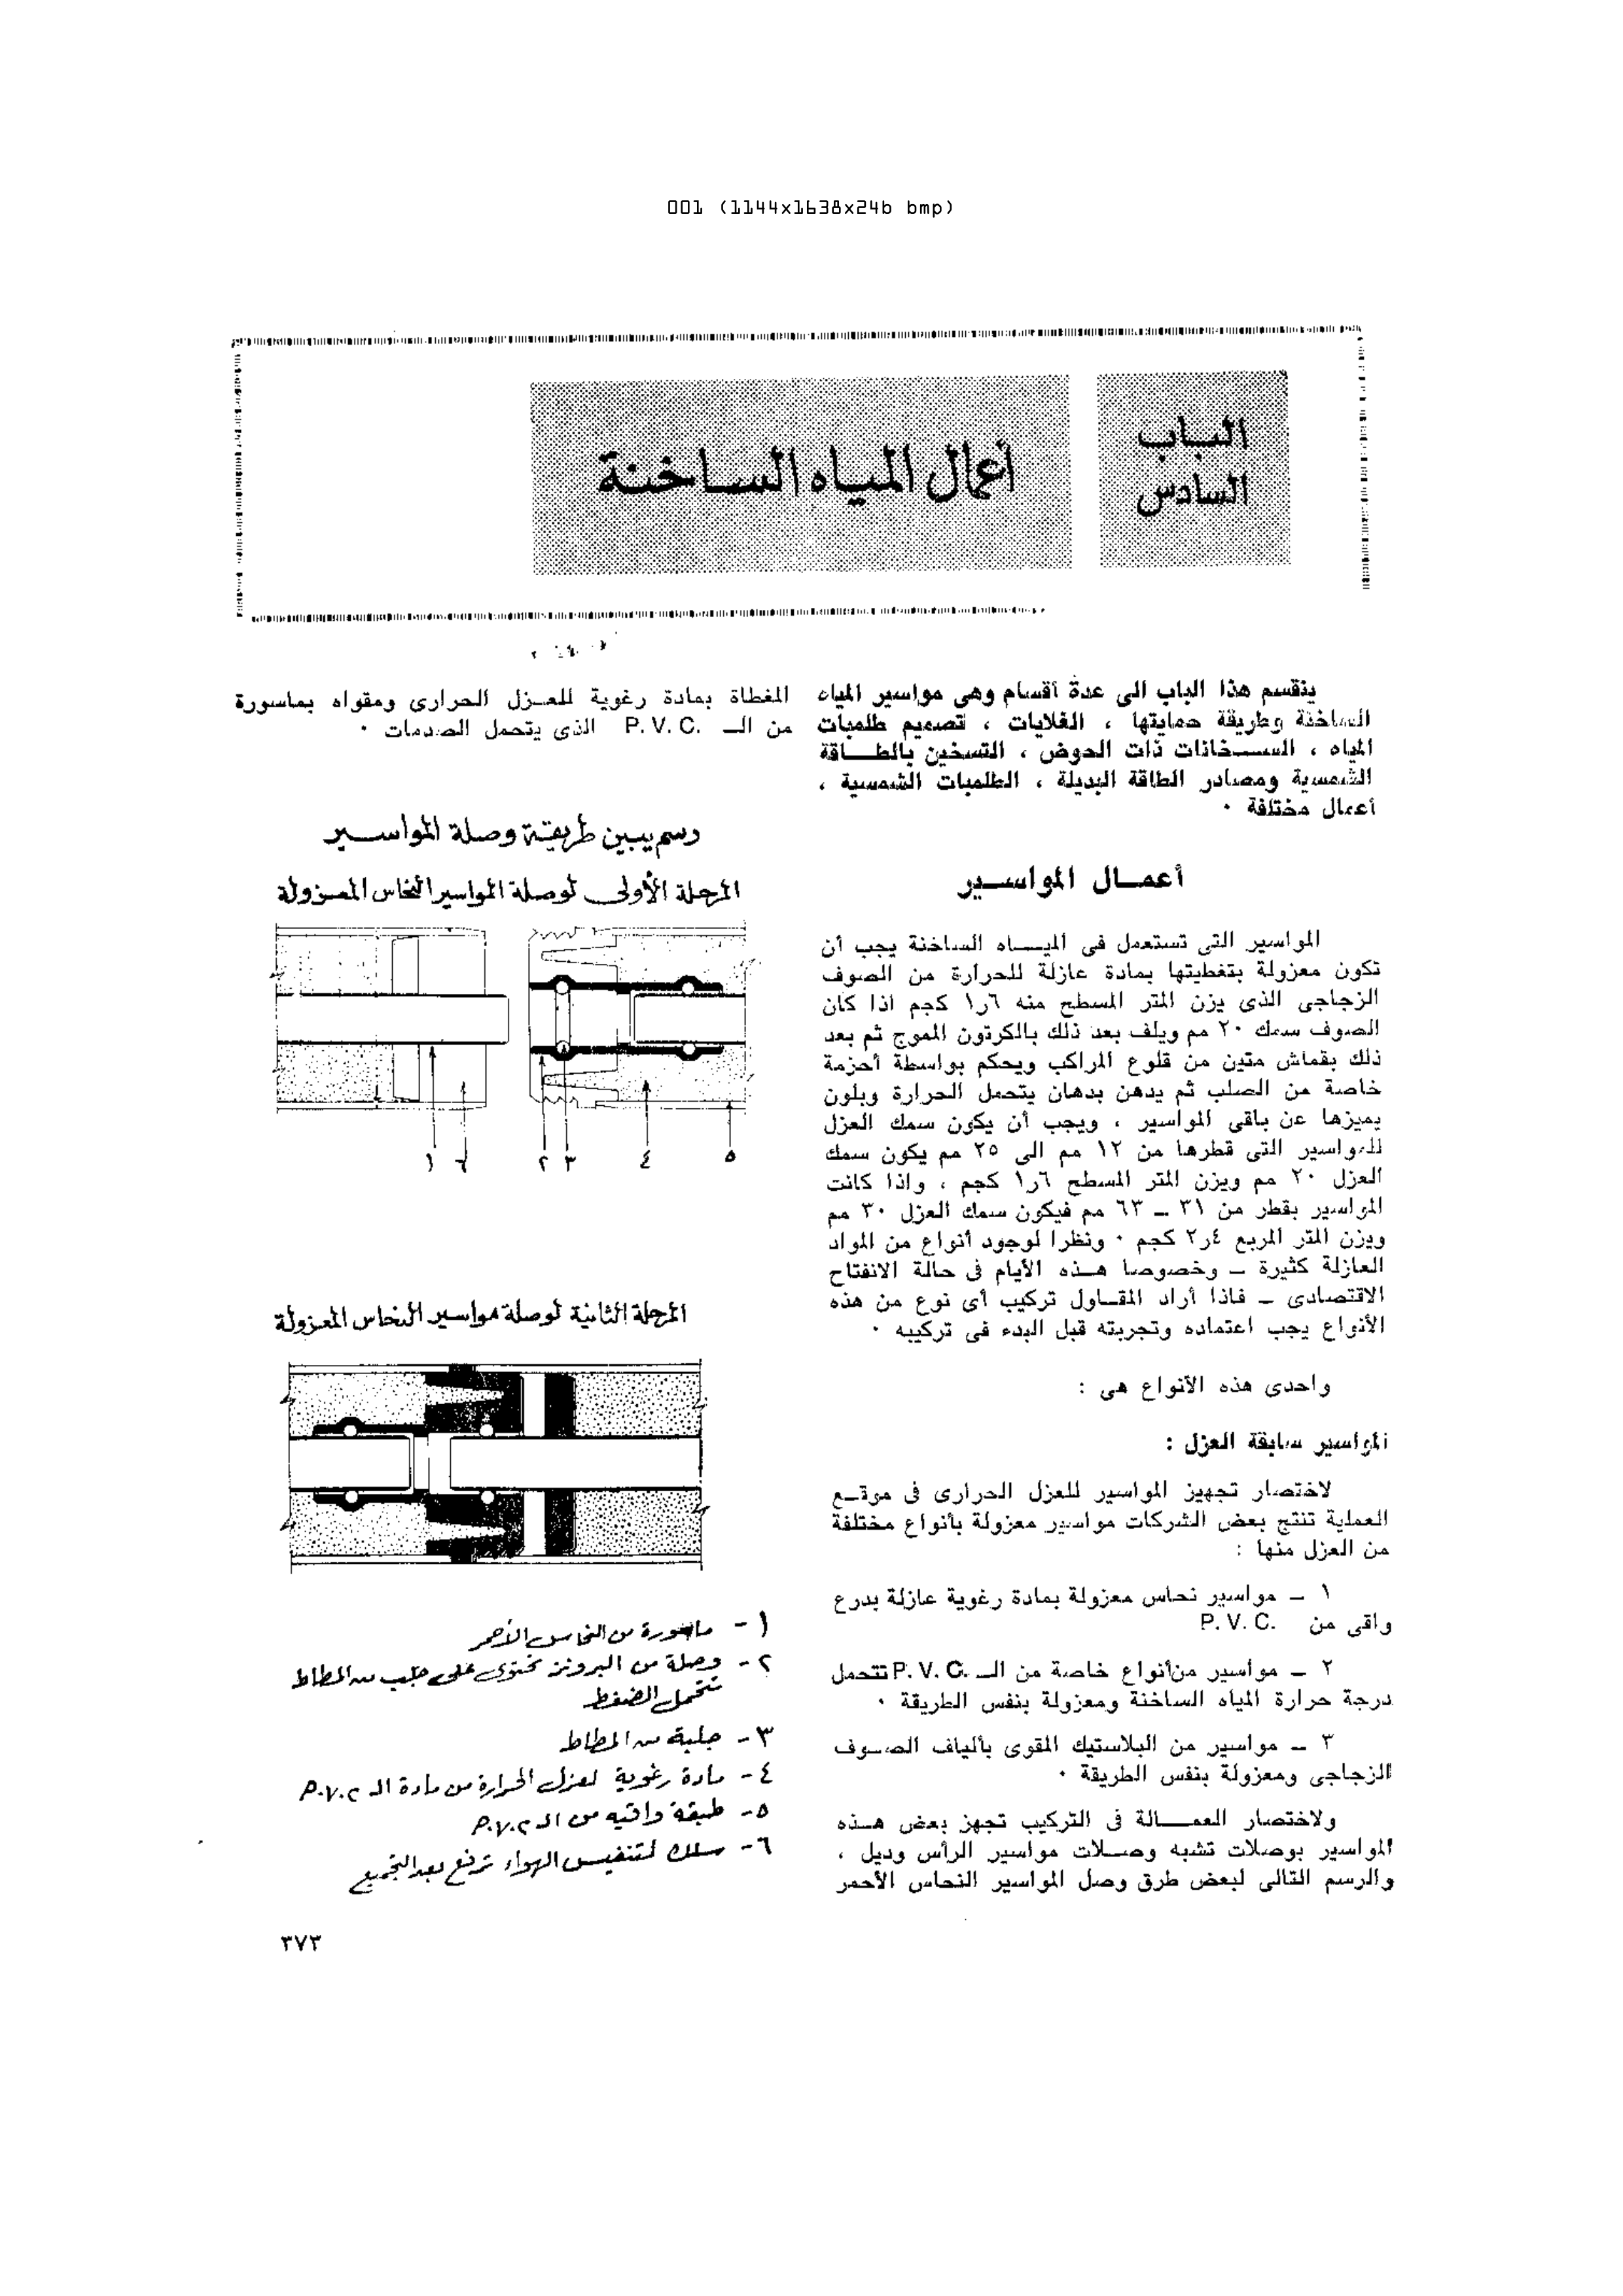 001 (1144x1638x24b bmp)
الباب
السادس
أعمال المياه الساخنة
ينقسم هذا الباب الى عدة أقسام وهى مواسير المياه
الساخنة وطريقة حمايتها ، الغلايات ، تصميم طلمبات
المياه ، الســخانات ذات الحوض ، التسخين بالطــاقة
الشمسية ومصادر الطاقة البديلة ، الطلمبات الشمسية ،
أعمال مختلفة ٠
أعمــال المواســير
المواسير التى تستعمل فى الميــاه الساخنة يجب أن
تكون معزولة بتغطيتها بمادة عازلة للحرارة من الصوف
الزجاجى الذى يزن المتر المسطح منه ٦ر١ كجم اذا كان
الصوف سمك ٢٠ مم ويلف بعد ذلك بالكرتون المموج ثم بعد
ذلك بقماش متين من قلوع المراكب ويحكم بواسطة أحزمة
خاصة من الصلب ثم يدهن بدهان يتحمل الحرارة وبلون
يميزها عن باقى المواسير ، ويجب أن يكون سمك العزل
للمواسير التى قطرها من ١٢ مم الى ٢٥ مم يكون سمك
العزل ٢٠ مم ويزن المتر المسطح ٦ر١ كجم ، واذا كانت
المواسير بقطر من ٣١ – ٦٣ مم فيكون سمك العزل ٣٠ مم
ويزن المتر المربع ٤ر٢ كجم ٠ ونظرا لوجود أنواع من المواد
العازلة كثيرة – وخصوصا هــذه الأيام فى حالة الانفتاح
الاقتصادى – فاذا أراد المقــاول تركيب أى نوع من هذه
الأنواع يجب اعتماده وتجربته قبل البدء فى تركيبه ٠
واحدى هذه الأنواع هى :
المواسير سابقة العزل :
لاختصار تجهيز المواسير للعزل الحرارى فى موقــع
العملية تنتج بعض الشركات مواسير معزولة بأنواع مختلفة
من العزل منها :
١ – مواسير نحاس معزولة بمادة رغوية عازلة بدرع
واقى من P.V.C.
٢ – مواسير من أنواع خاصة من الــ P.V.C. تتحمل
درجة حرارة المياه الساخنة ومعزولة بنفس الطريقة ٠
٣ – مواسير من البلاستيك المقوى بألياف الصــوف
الزجاجى ومعزولة بنفس الطريقة ٠
ولاختصار العمــالة فى التركيب تجهز بعض هــذه
المواسير بوصلات تشبه وصــلات مواسير الرأس وديل ،
والرسم التالى لبعض طرق وصل المواسير النحاس الأحمر
المغطاة بمادة رغوية للعــزل الحرارى ومقواه بماسورة
من الــ P.V.C. الذى يتحمل الصدمات ٠
رسم يبين طريقة وصلة المواســير
المرحلة الأولى لوصلة المواسير النحاس المعزولة
١ ٦ ٢ ٣ ٤ ٥
المرحلة الثانية لوصلة مواسير النحاس المعزولة
١- ماسورة من النحاس الأحمر
٢- وصلة من البرونز تحتوى على جلب من المطاط
تتحمل الضغط
٣- جلبة من المطاط
٤- مادة رغوية لعزل الحرارة من مادة الـ P.V.C
٥- طبقة واقيه من الـ P.V.C
٦- سلك لتنفيس الهواء ترفع بعد التجميع
٣٧٣